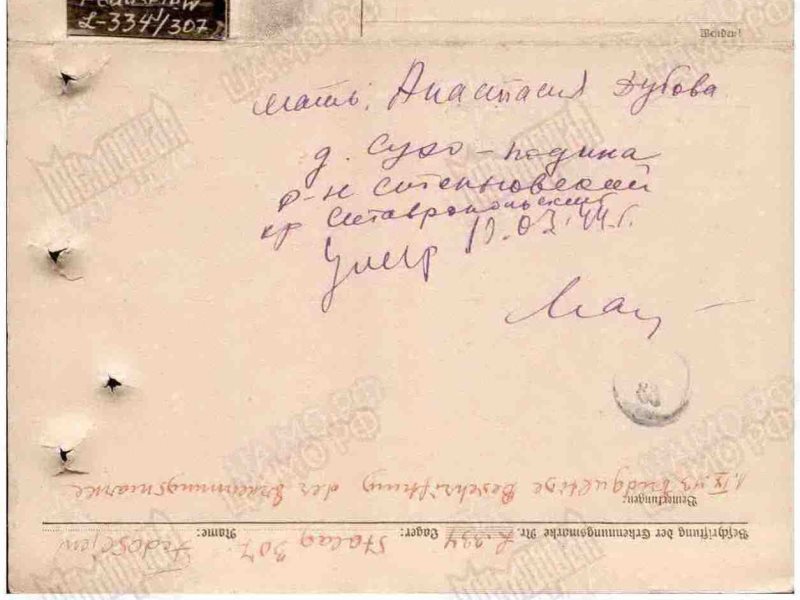 L-334/307
мать: Анастасия Дубова
д. Сухо-падина
р-н Степновский
кр Ставропольский
Умер 10.03.44г.
Bemerkungen: 1. IX. 43 Endgültige Beschriftung der Erkennungsmarke
Beschriftung der Erkennungsmarke Nr. L.334 Lager: Stalag 307. Name: Fedosejew